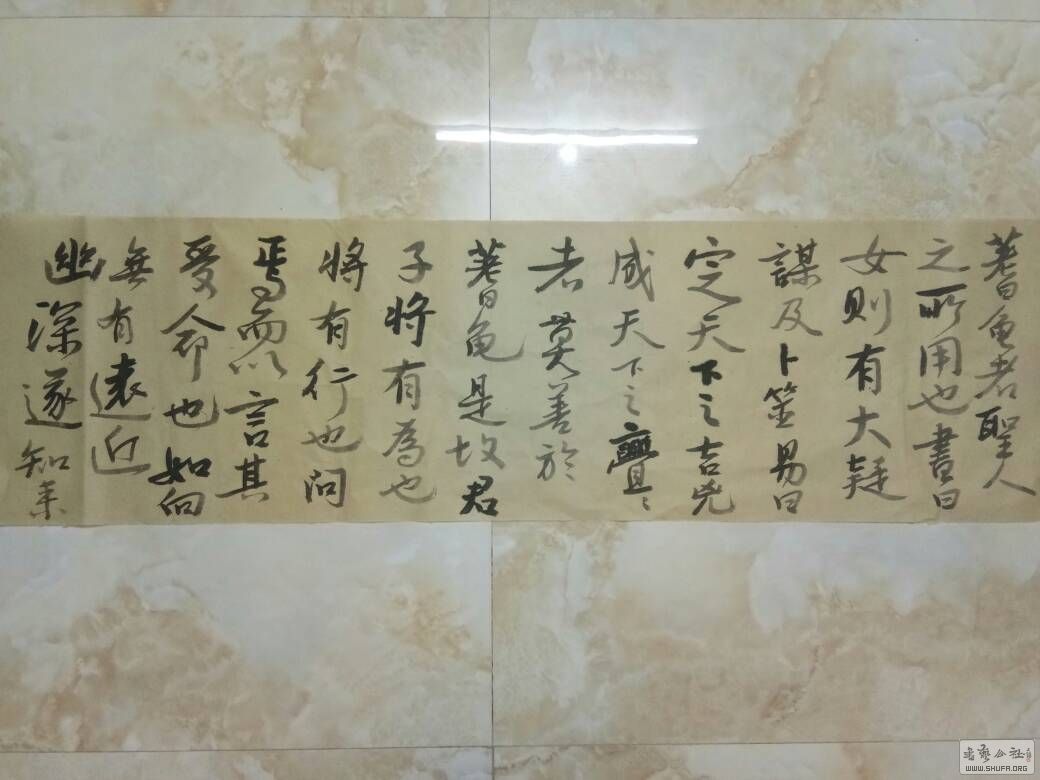 蓍龜者聖人
之所用也書曰
女則有大疑
謀及卜筮易曰
定天下之吉兇
成天下之亹〻
者莫善於
蓍龜是故君
子將有為也
將有行也問
焉而以言其
受命也如向
無有遠近
幽深遂知来
书艺公社
WWW.SHUFA.ORG